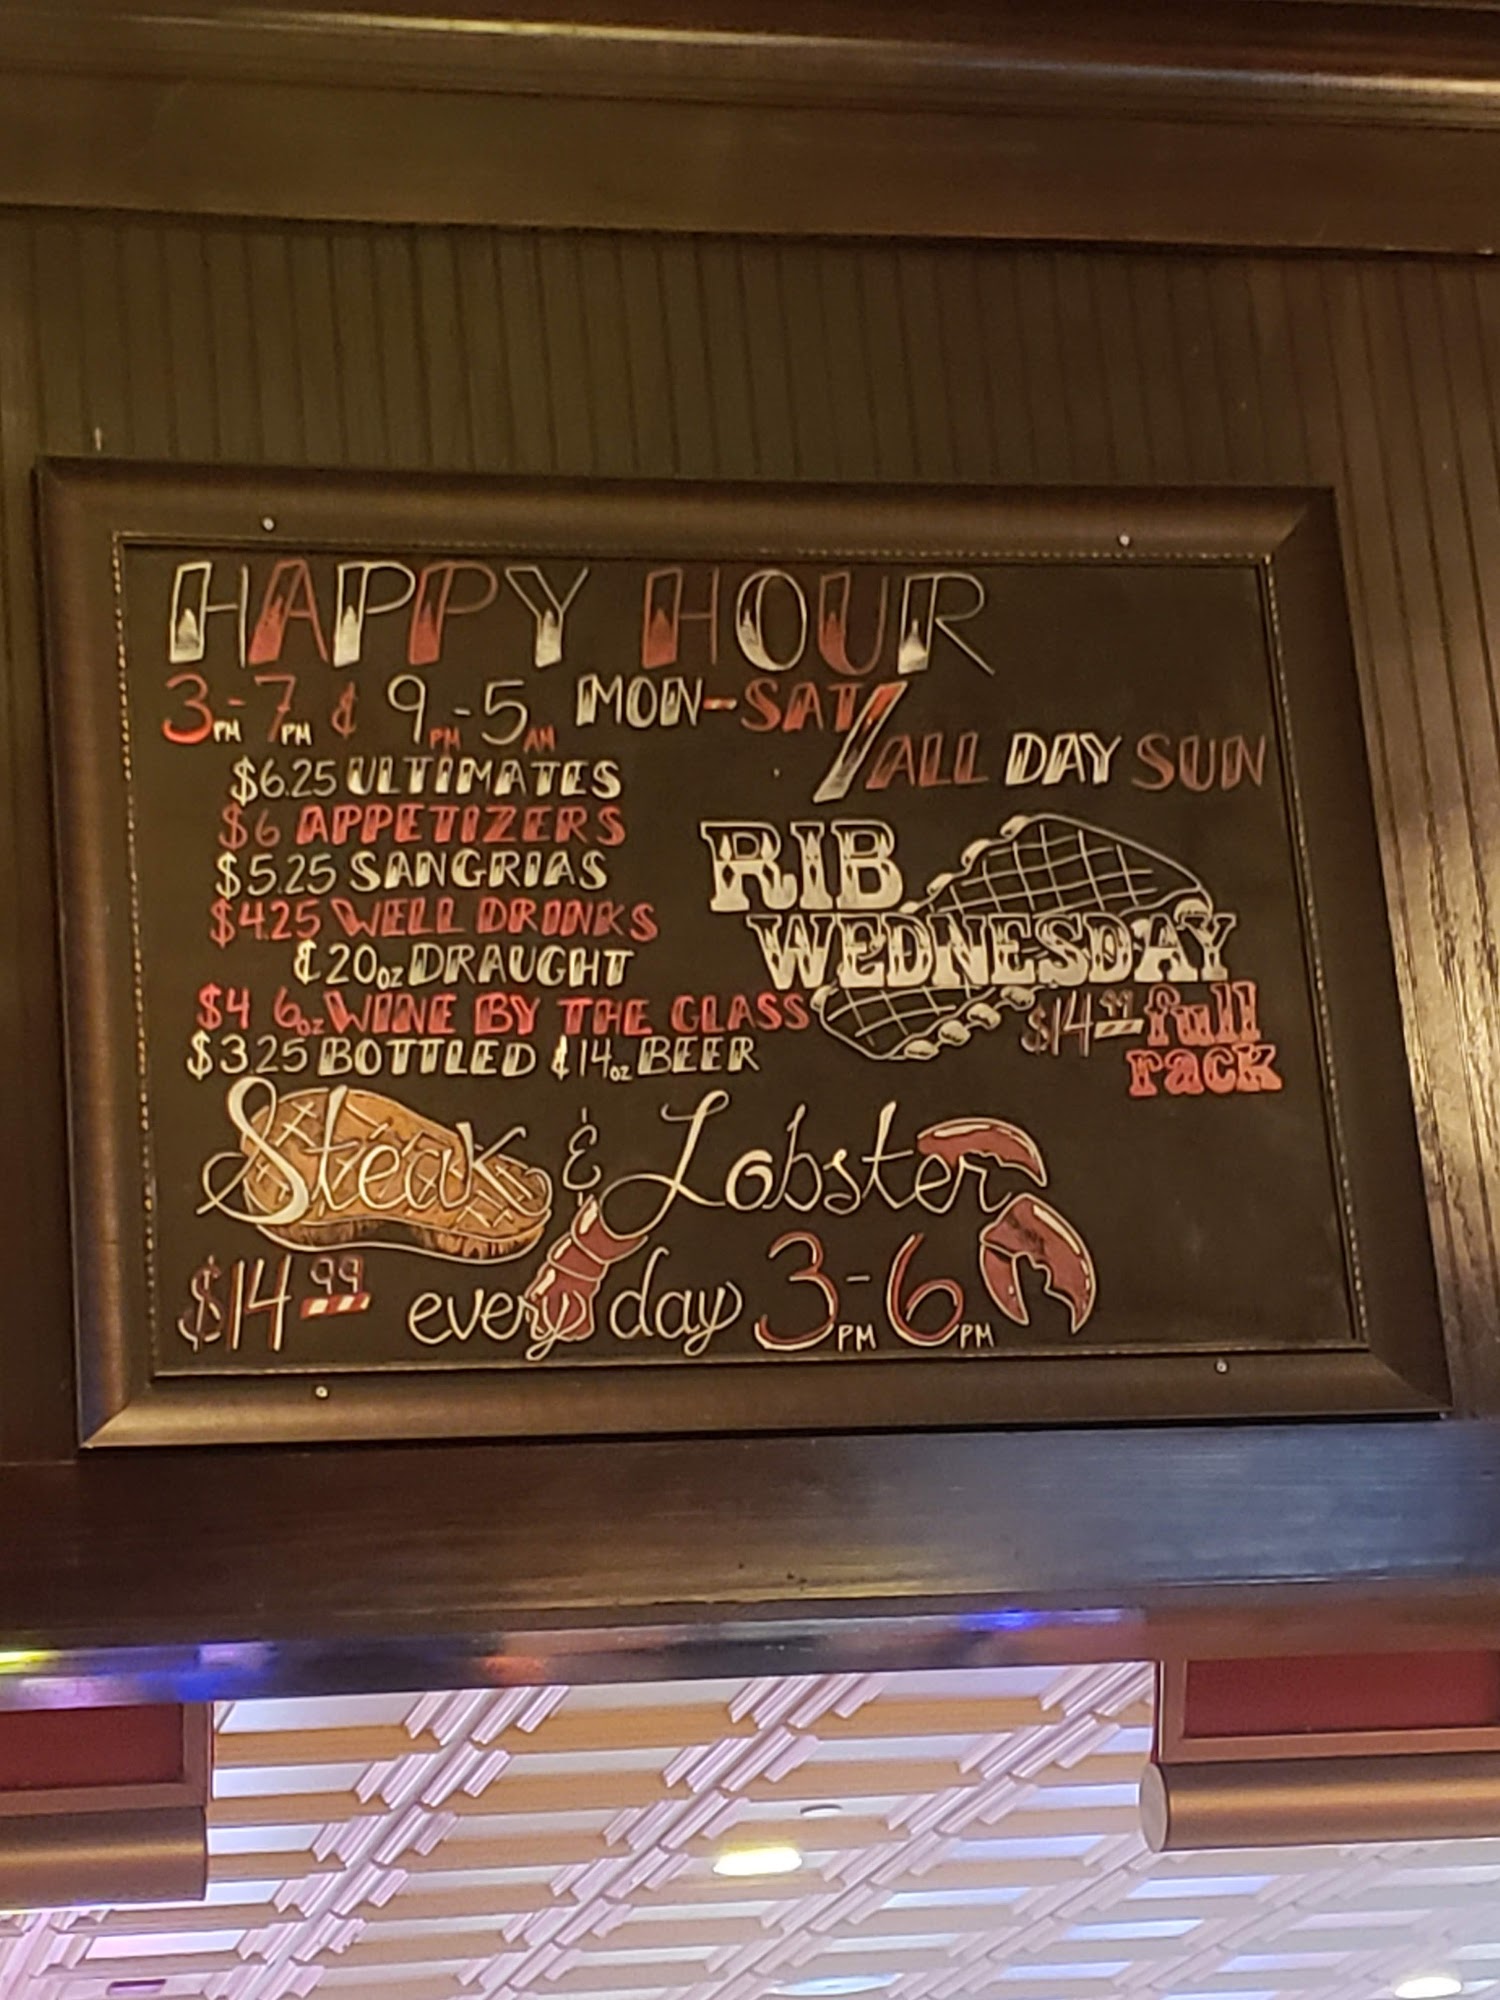 HAPPY HOUR
3PM-7PM & 9PM-5AM MON-SAT/ALL DAY SUN
$6.25 ULTIMATES
$6 APPETIZERS
$5.25 SANGRIAS
$4.25 WELL DRINKS
& 20oz DRAUGHT
$4 6oz WINE BY THE GLASS
$3.25 BOTTLED & 14oz BEER
RIB
WEDNESDAY
$14.99 full
rack
Steak & Lobster
$14.99 every day 3PM-6PM